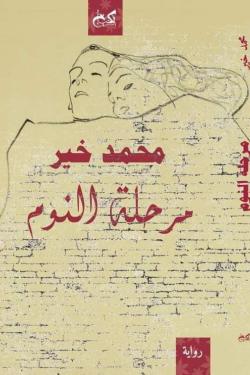 محمد خير
مرحلة النوم
رواية
محمد خير
مرحلة النوم